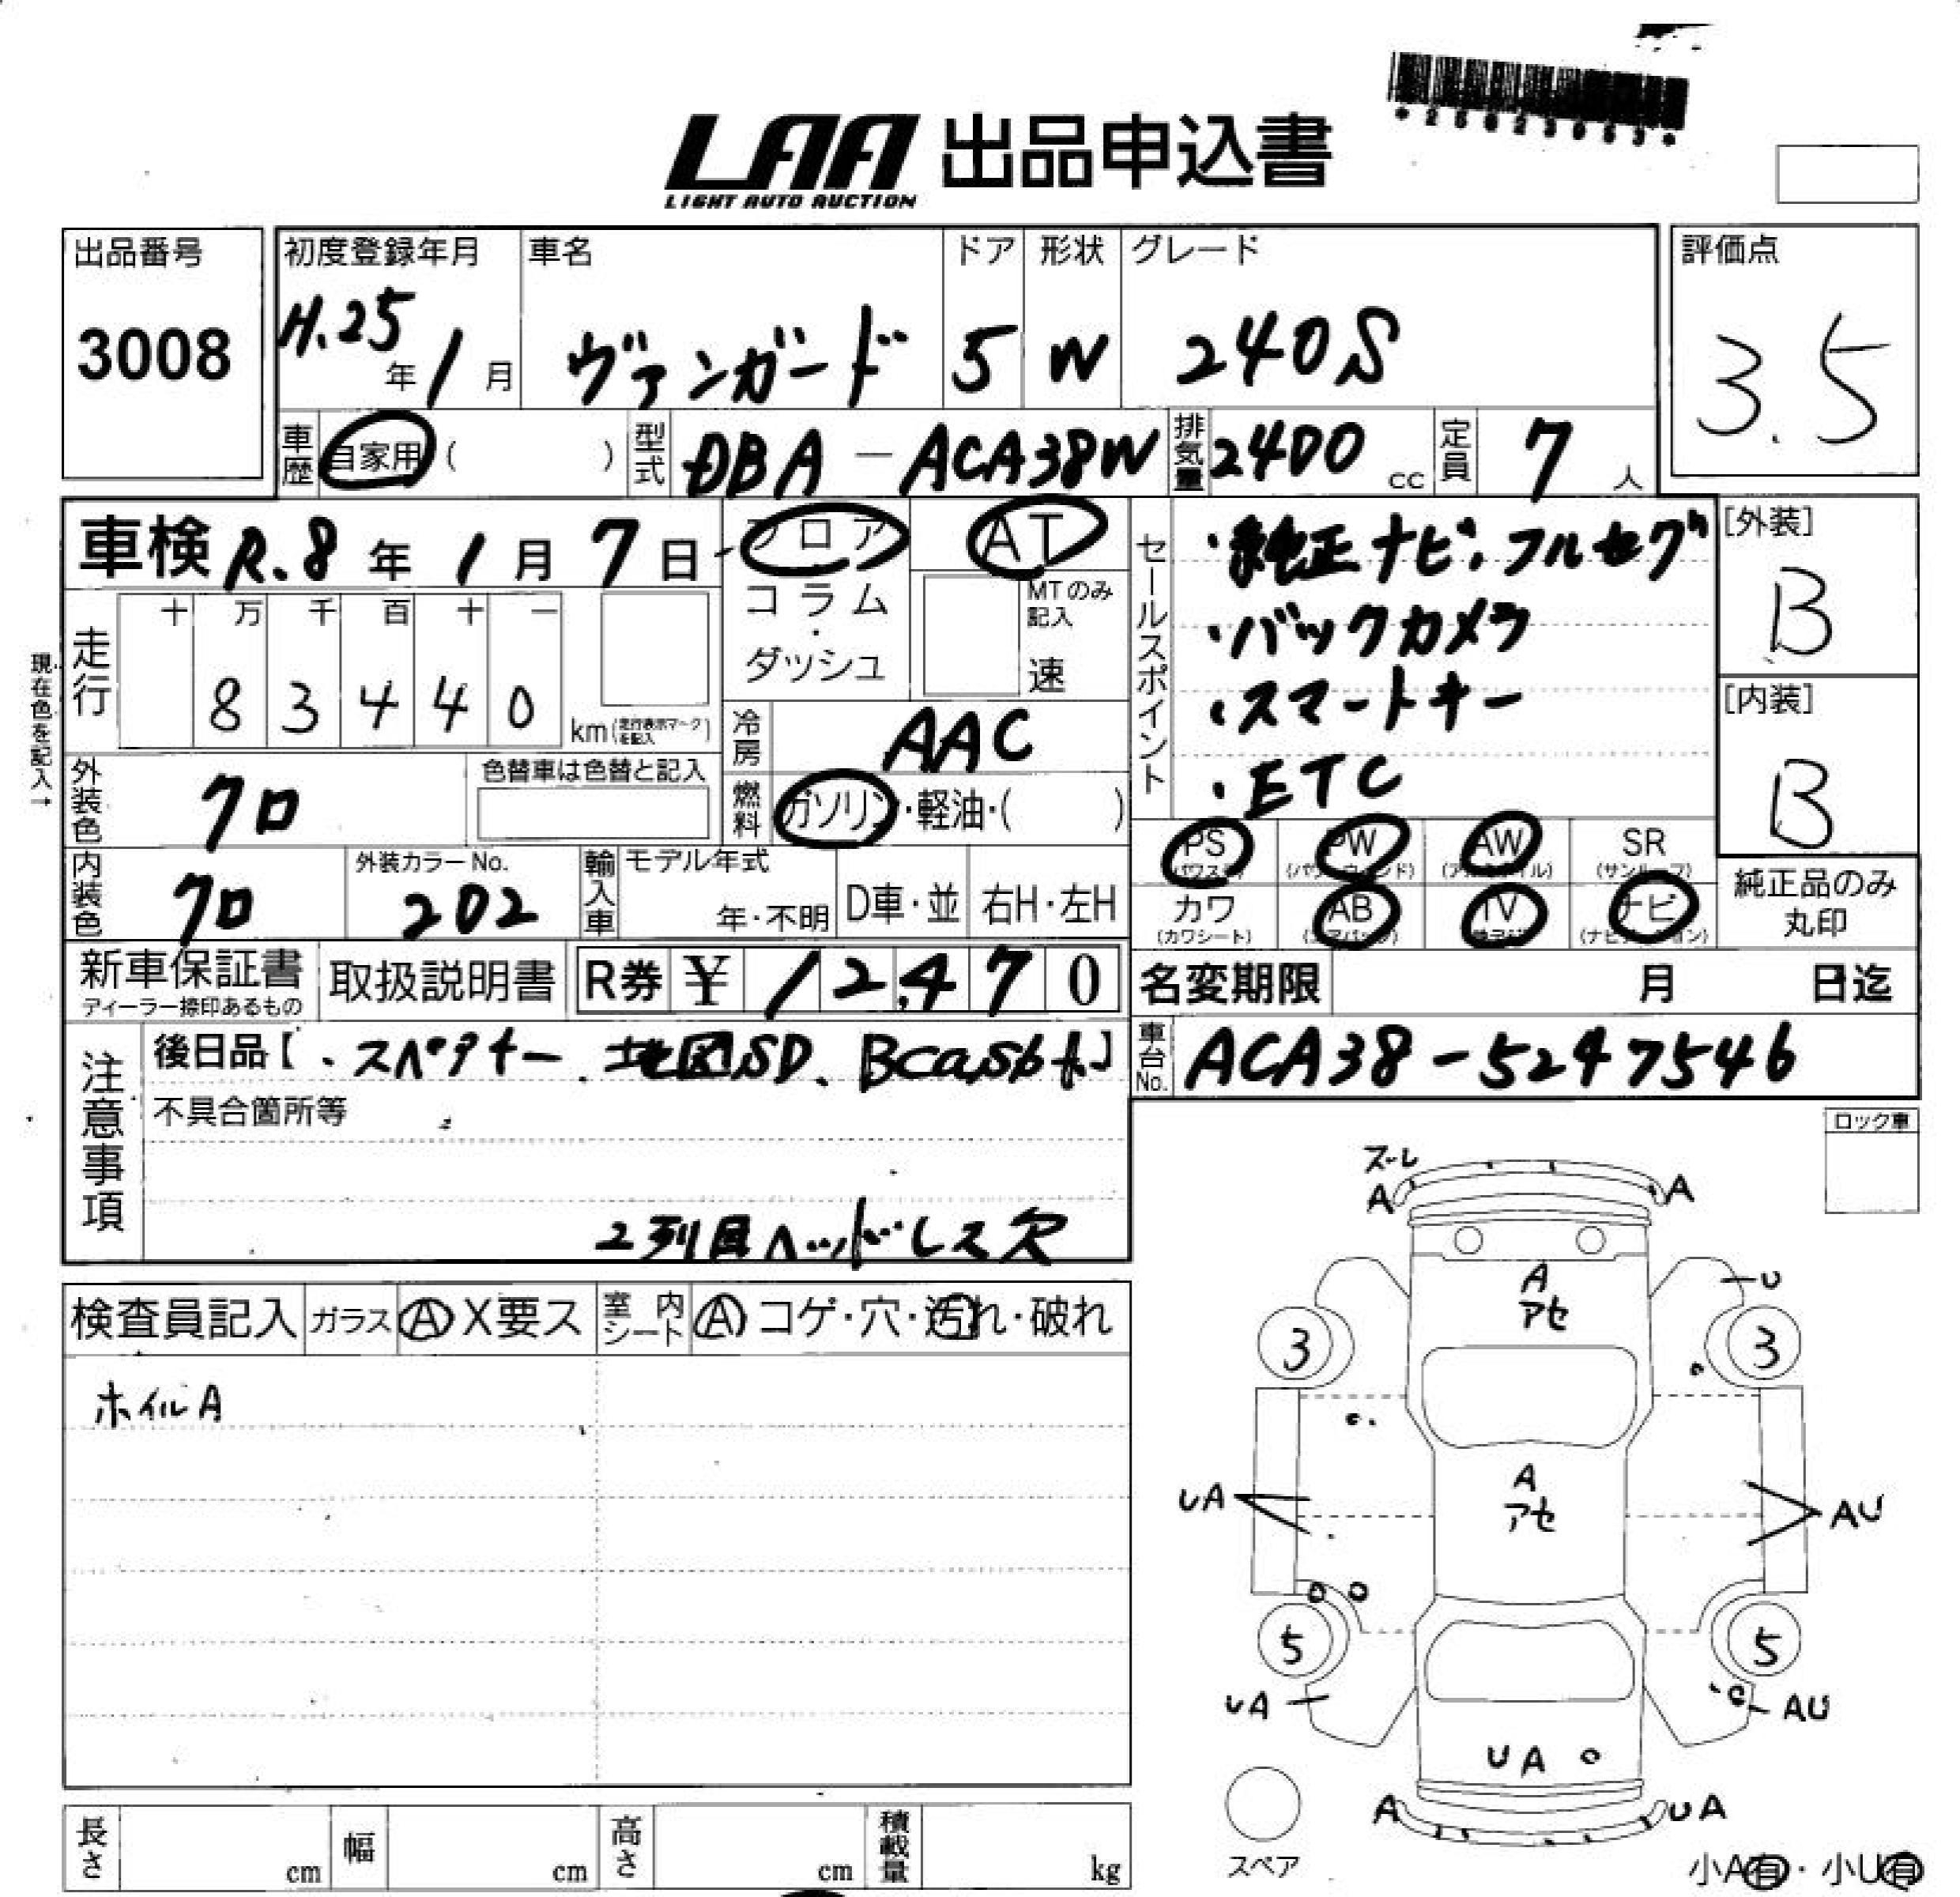 LAA 出品申込書
LIGHT AUTO AUCTION
出品番号
3008
初度登録年月
H.25年 1月
車名
ヴァンガード
ドア
5
形状
W
グレード
240S
評価点
3.5
車歴 自家用 ( )
型式 DBA-ACA38W
排気量 2400 cc
定員 7人
車検 R.8年 1月 7日
フロア
コラム・ダッシュ
AT
MTのみ記入
速
セールスポイント
・純正ナビ、フルセグ
・バックカメラ
・スマートキー
・ETC
[外装]
B
[内装]
B
現在色を記入→
走行
十 万 千 百 十 一
8 3 4 4 0
km(走行表示マークを記入)
冷房 AAC
燃料 ガソリン・軽油・( )
外装色 クロ
色替車は色替と記入
内装色 クロ
外装カラーNo.
202
輸入車
モデル年式
年・不明
D車・並
右H・左H
PS (パワステ)
PW (パワーウィンド)
AW (アルミホイル)
SR (サンルーフ)
カワ (カワシート)
AB (エアバッグ)
TV
ナビ (ナビゲーション)
純正品のみ丸印
新車保証書
ディーラー捺印あるもの
取扱説明書
R券 ¥ 12,470
名変期限 月 日迄
車台No. ACA38-5247546
注意事項
後日品【・スペアキー、地図SD、Bcas
不具合箇所等
2列目ヘッドレス欠
ロック車
検査員記入
ガラス A X要ス
室内シート A コゲ・穴・汚れ・破れ
ホイルA
ズレ
A A
A
アセ
U
3 3
A
アセ
UA AU
5 5
UA AU
UA
A UA
スペア
小A有・小U有
長さ cm
幅 cm
高さ cm
積載量 kg